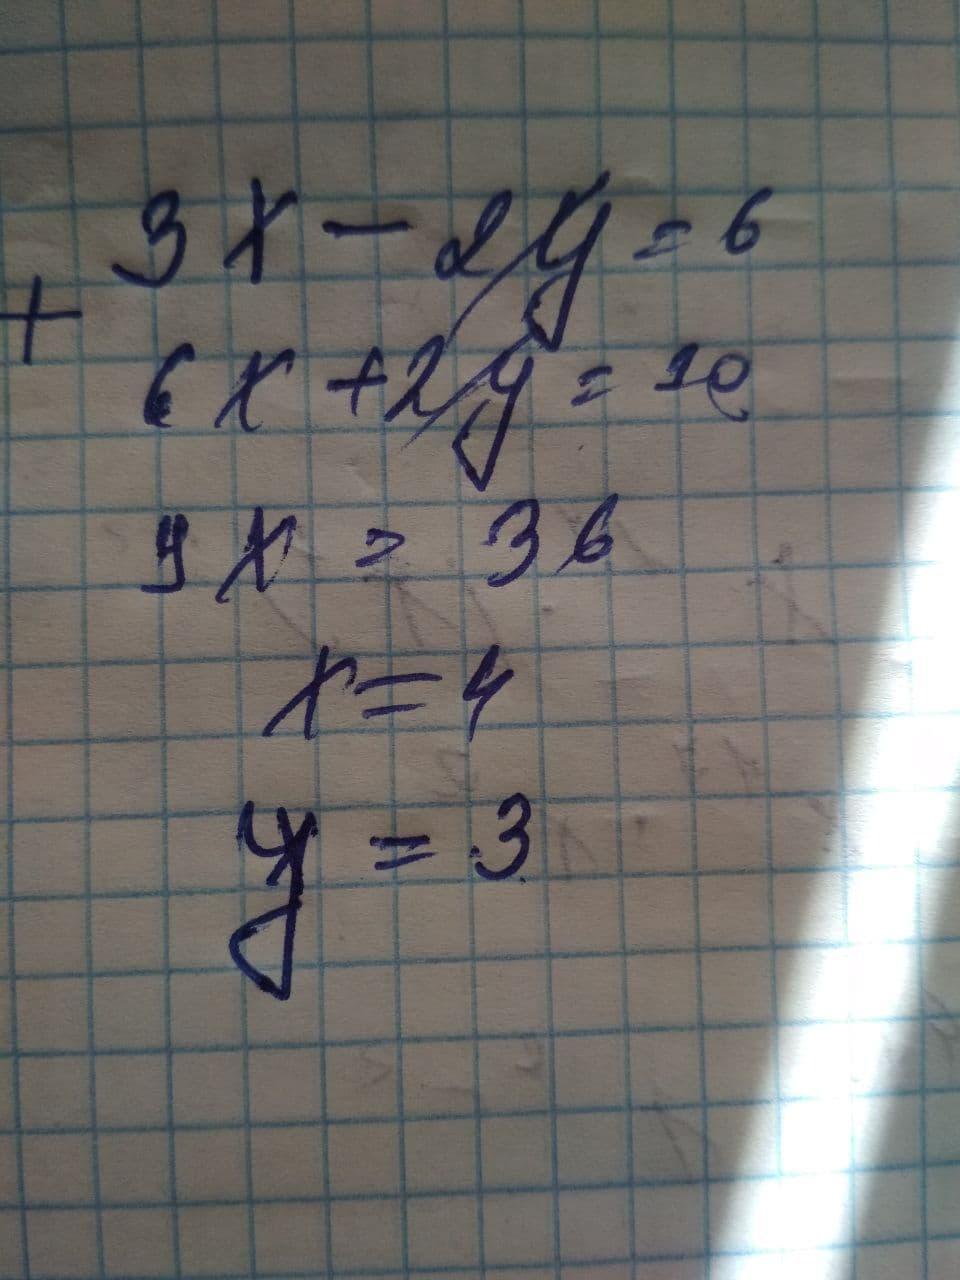 3x - 2y = 6
+
6x + 2y = 10
9x = 36
x = 4
y = 3